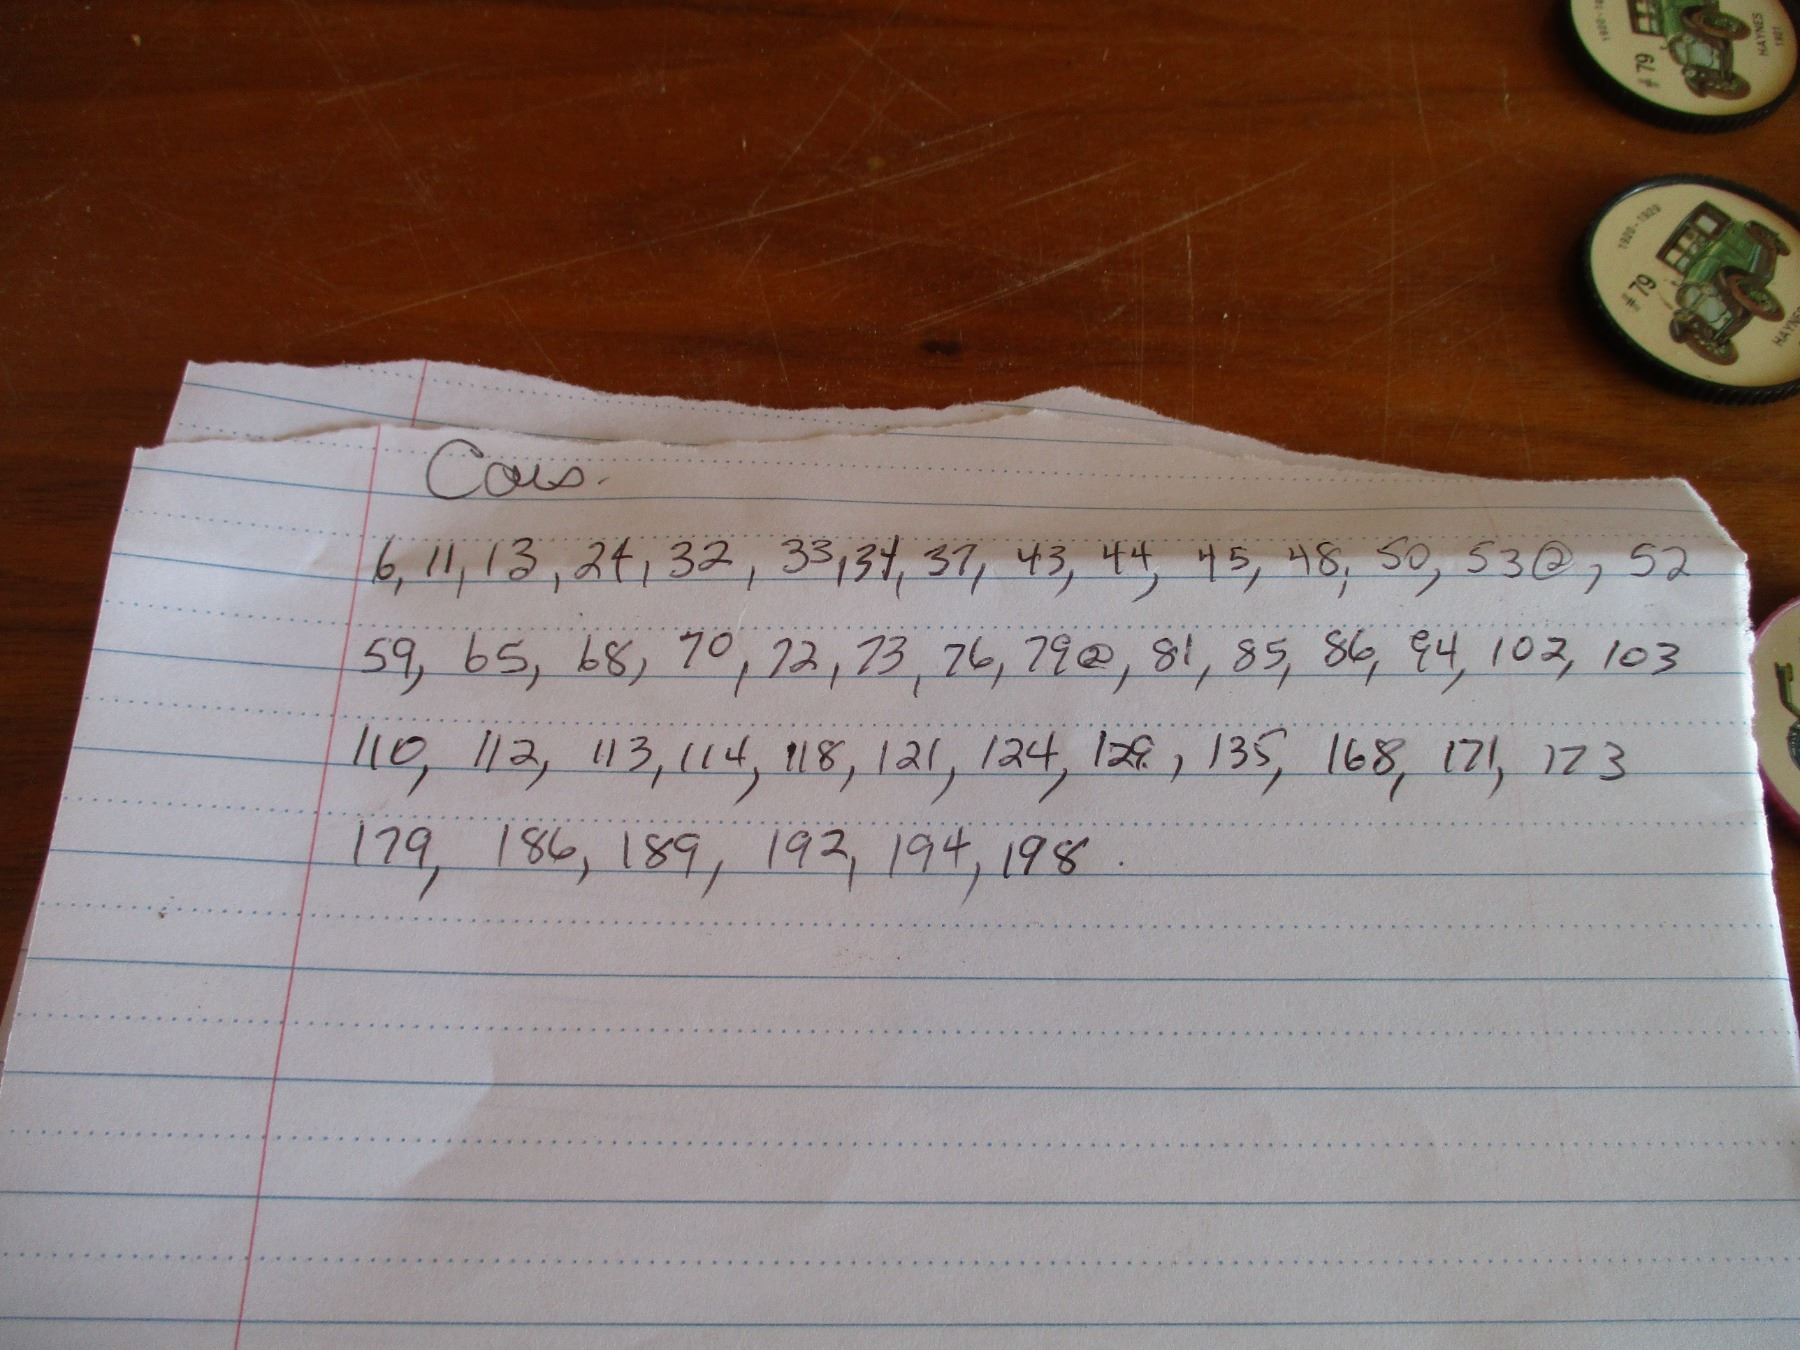 Cars.
6, 11, 13, 24, 32, 33, 34, 37, 43, 44, 45, 48, 50, 53②, 52
59, 65, 68, 70, 72, 73, 76, 79②, 81, 85, 86, 94, 102, 103
110, 112, 113, 114, 118, 121, 124, 129, 135, 168, 171, 173
179, 186, 189, 192, 194, 198.
#79
HAYNES
1921
1920-1929
#79